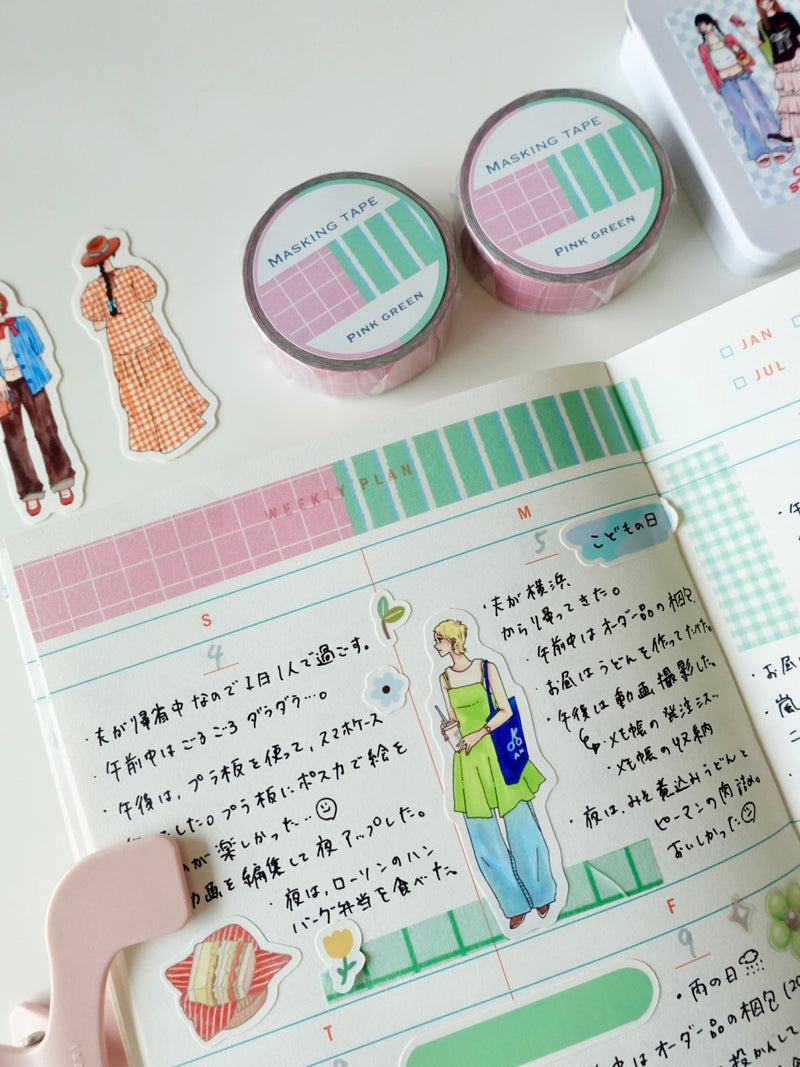 MASKING TAPE
PINK GREEN
MASKING TAPE
PINK GREEN
JAN
JUL
WEEKLY PLAN
S
4
・夫が帰省中なので1日1人で過ごす。
・午前中はごろごろダラダラ…。
・午後は、プラ板を使って、スマホケース
した。プラ板にポスカで絵を
が楽しかった…
画を編集して夜アップした。
・夜は、ローソンのハン
バーグ弁当を食べた。
M
5
こどもの日
・夫が横浜
から帰ってきた。
・午前中はオーダー品の梱包
・お昼はうどんを作ってたべた。
・午後は動画撮影した。
・メモ帳の発注ミス…
・メモ帳の収納
・夜は、みそ煮込みうどんと
ピーマンの肉詰め。
おいしかった
T
F
9
・雨の日
中はオーダー品の梱包(20
・お昼
・嵐